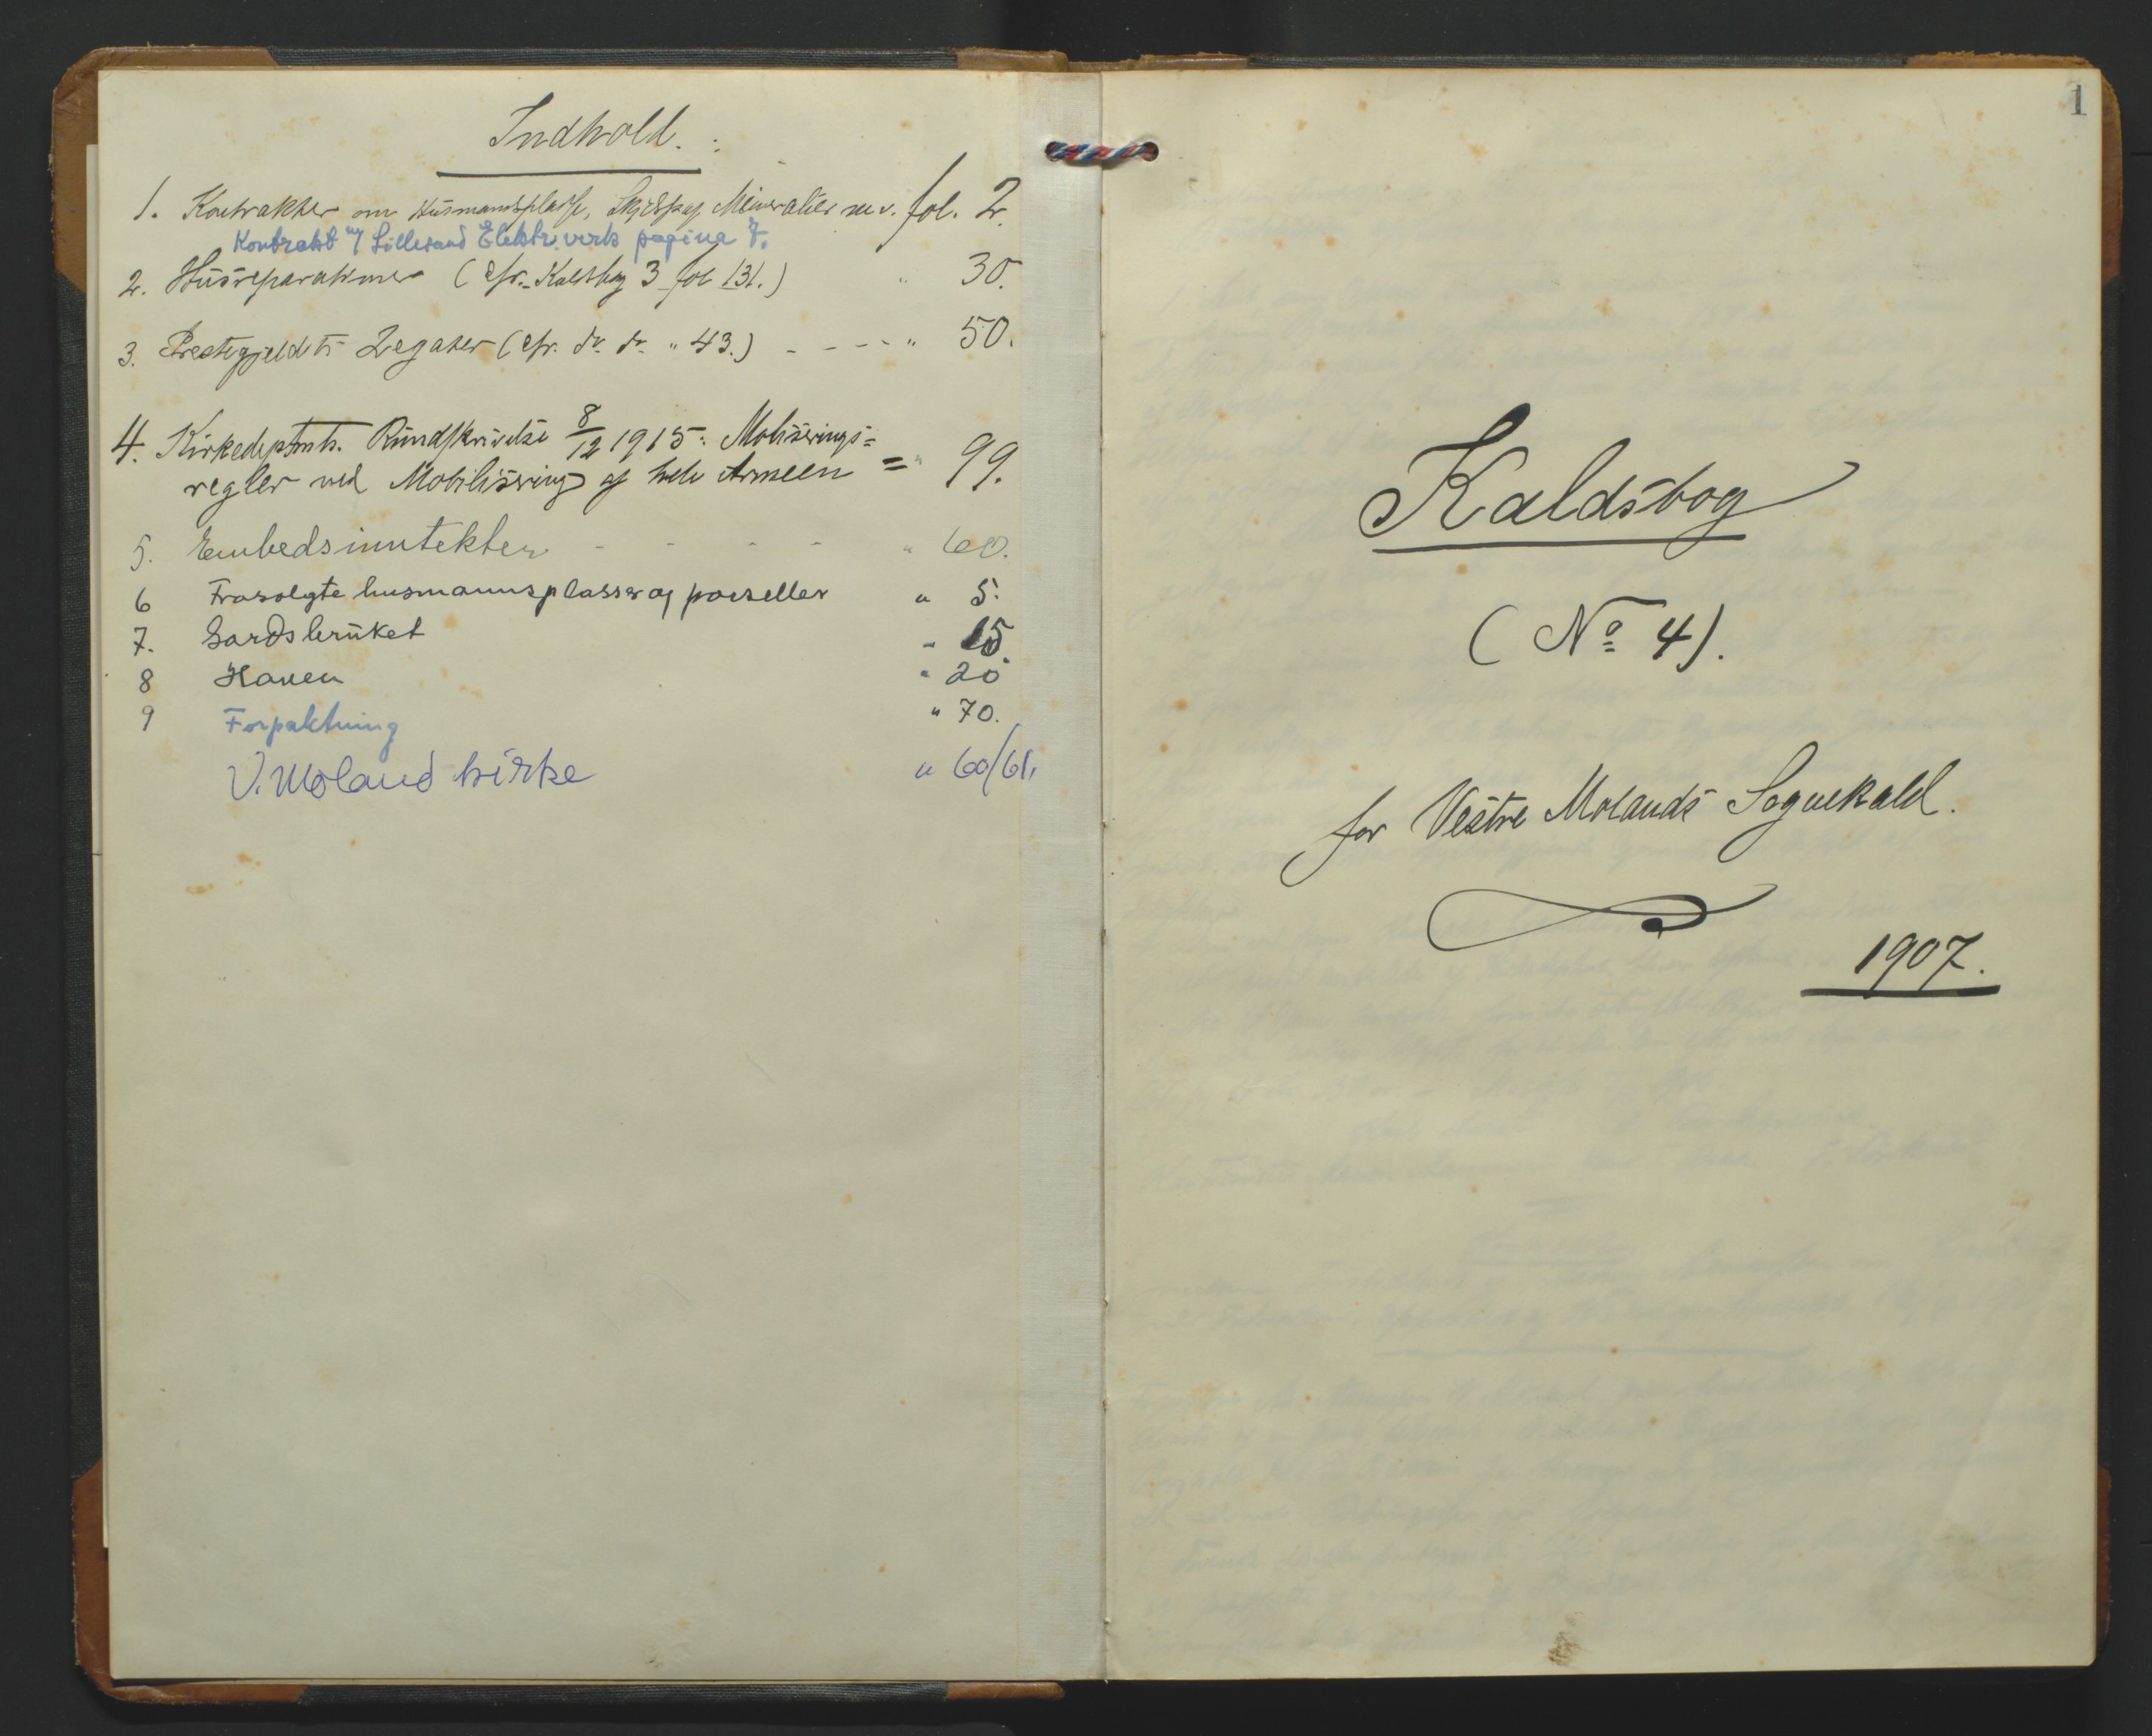 Indhold.
1. Kontrakter om Husmandsplasse, Mineralier m.v. fol. 2.
Kontrakt m/ Lillesand Elektr. verk pagina 7.
2. Husreparationer (cfr. Kaldsbog 3 fol 131.) " 30.
3. Prestegjeldets Legater (cfr. do. do. " 43.) - - - - " 50.
4. Kirkedeptmts. Rundskrivelse 8/12 1915: Mobiserings=
regler ved Mobilisering af hele Armeen = " 99.
5. Embedsinntekter - - - - " 60.
6 Frasolgte husmannsplasser og parseller " 5.
7. Gardsbruket " 15
8 Haven " 20
9 Forpaktning " 70.
V. Moland kirke " 60/61.
1
Kaldsbog
(No 4).
for Vestre Molands Sognekald.
1907.